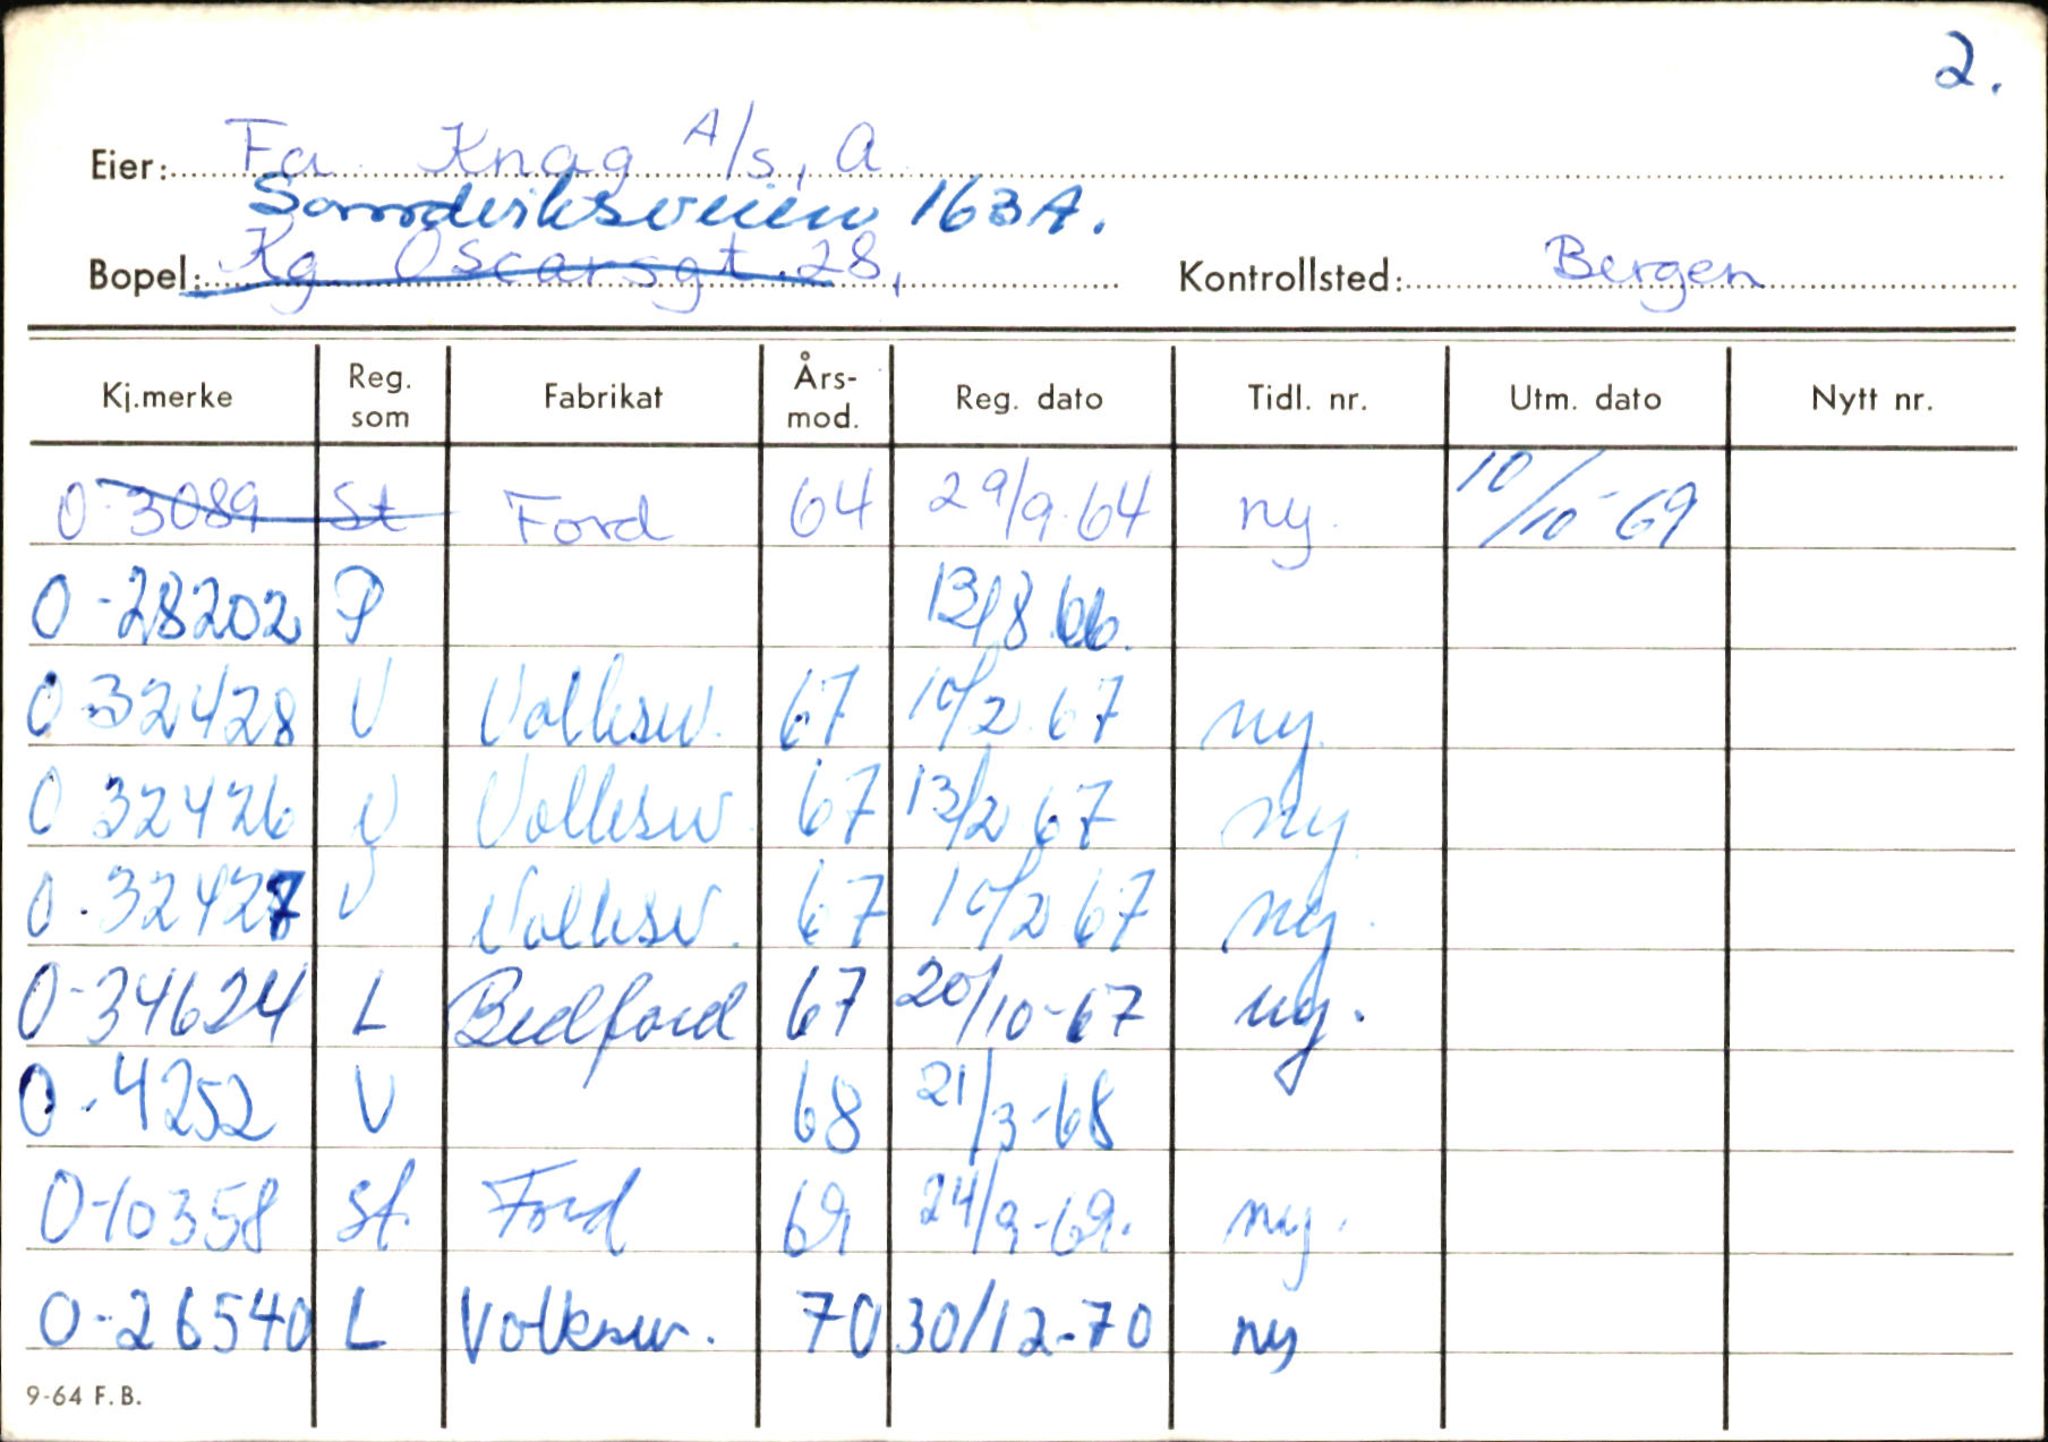 2.
Eier: Fa Knag A/s, A
Sandviksveien 163A.
Bopel: Kg Oscarsgt. 28, Kontrollsted: Bergen
Kj.merke Reg. som Fabrikat Års-mod. Reg. dato Tidl. nr. Utm. dato Nytt nr.
O-3089 St Ford 64 29/9-64 ny. 10/10-69
O-28202 P 13/8.66.
O-32428 V Volksw. 67 10/2 67 ny.
O 32426 V Volksw. 67 13/2 67 ny.
O-32427 V Volksw. 67 10/2 67 ny.
O-34624 L Bedford 67 20/10-67 ny.
O-4252 V 68 21/3-68
O-10358 St. Ford 69 24/9-69. ny.
O-26540 L Volksw. 70 30/12-70 ny
9-64 F.B.